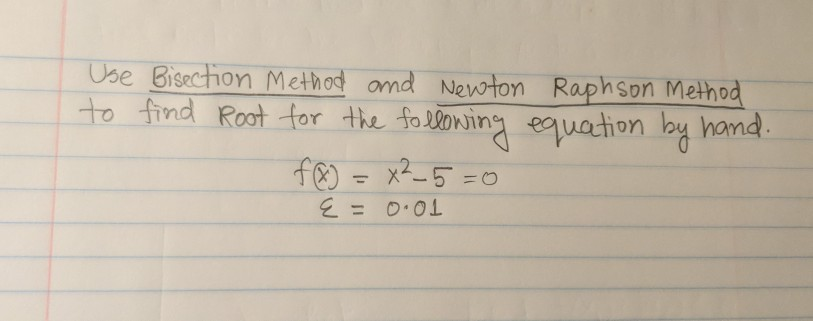 Use Bisection Method and Newton Raphson Method
to find Root for the following equation by hand.
f(x) = x²-5 = 0
ε = 0.01